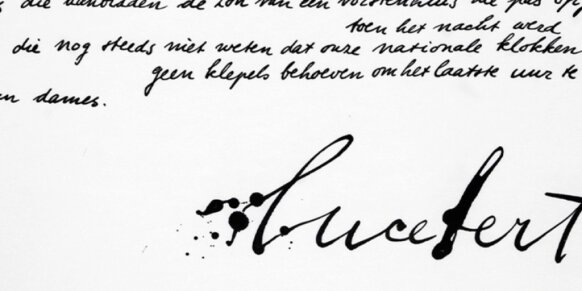 die aanbaden de zon van een vorstenhuis die pas op
toen het nacht werd
die nog steeds niet weten dat onze nationale klokken
geen klepels behoeven om het laatste uur te
en dames.
lucebert